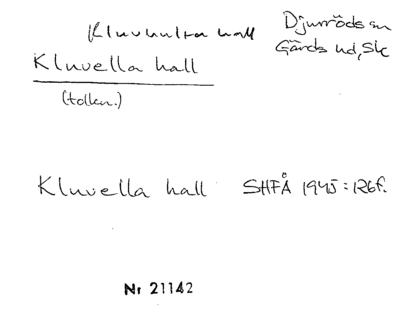 Kluvhultra hall
Djurröds sn
Gärds hd, Sk
Kluvella hall
(tolkn.)
Kluvella hall SHFÅ 1945:126f.
Nr 21142